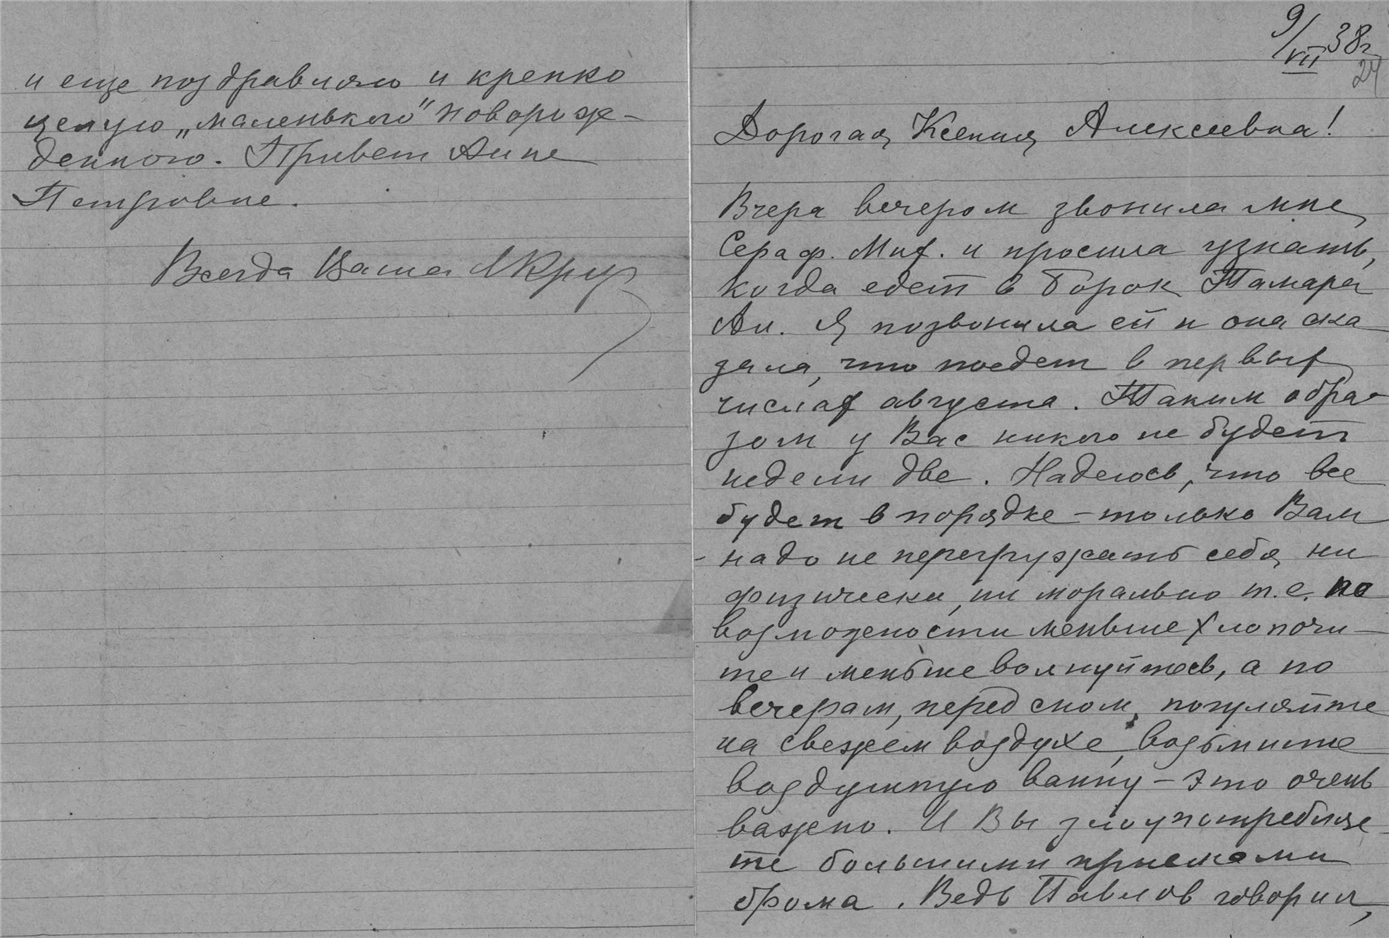 и еще поздравляю и крепко
целую „маленького" новорож-
денного. Привет Анне
Петровне.
Всегда Ваша
9/VII 38г
24
Дорогая Ксения Алексеевна!
Вчера вечером звонила мне
Сераф. Мих. и просила узнать,
когда едет в Борок Тамара
Ан. Я позвонила ей и она ска
зала, что поедет в первых
числах августа. Таким обра-
зом у Вас никого не будет
недели две. Надеюсь, что все
будет в порядке – только Вам
надо не перегружать себя ни
физически, ни морально т.е. по
возможности меньше хлопочи-
те и меньше волнуйтесь, а по
вечерам, перед сном, погуляйте
на свежем воздухе, возьмите
воздушную ванну – это очень
важно. И Вы злоупотребляе-
те большими приемами
брома. Ведь Павлов говорил,